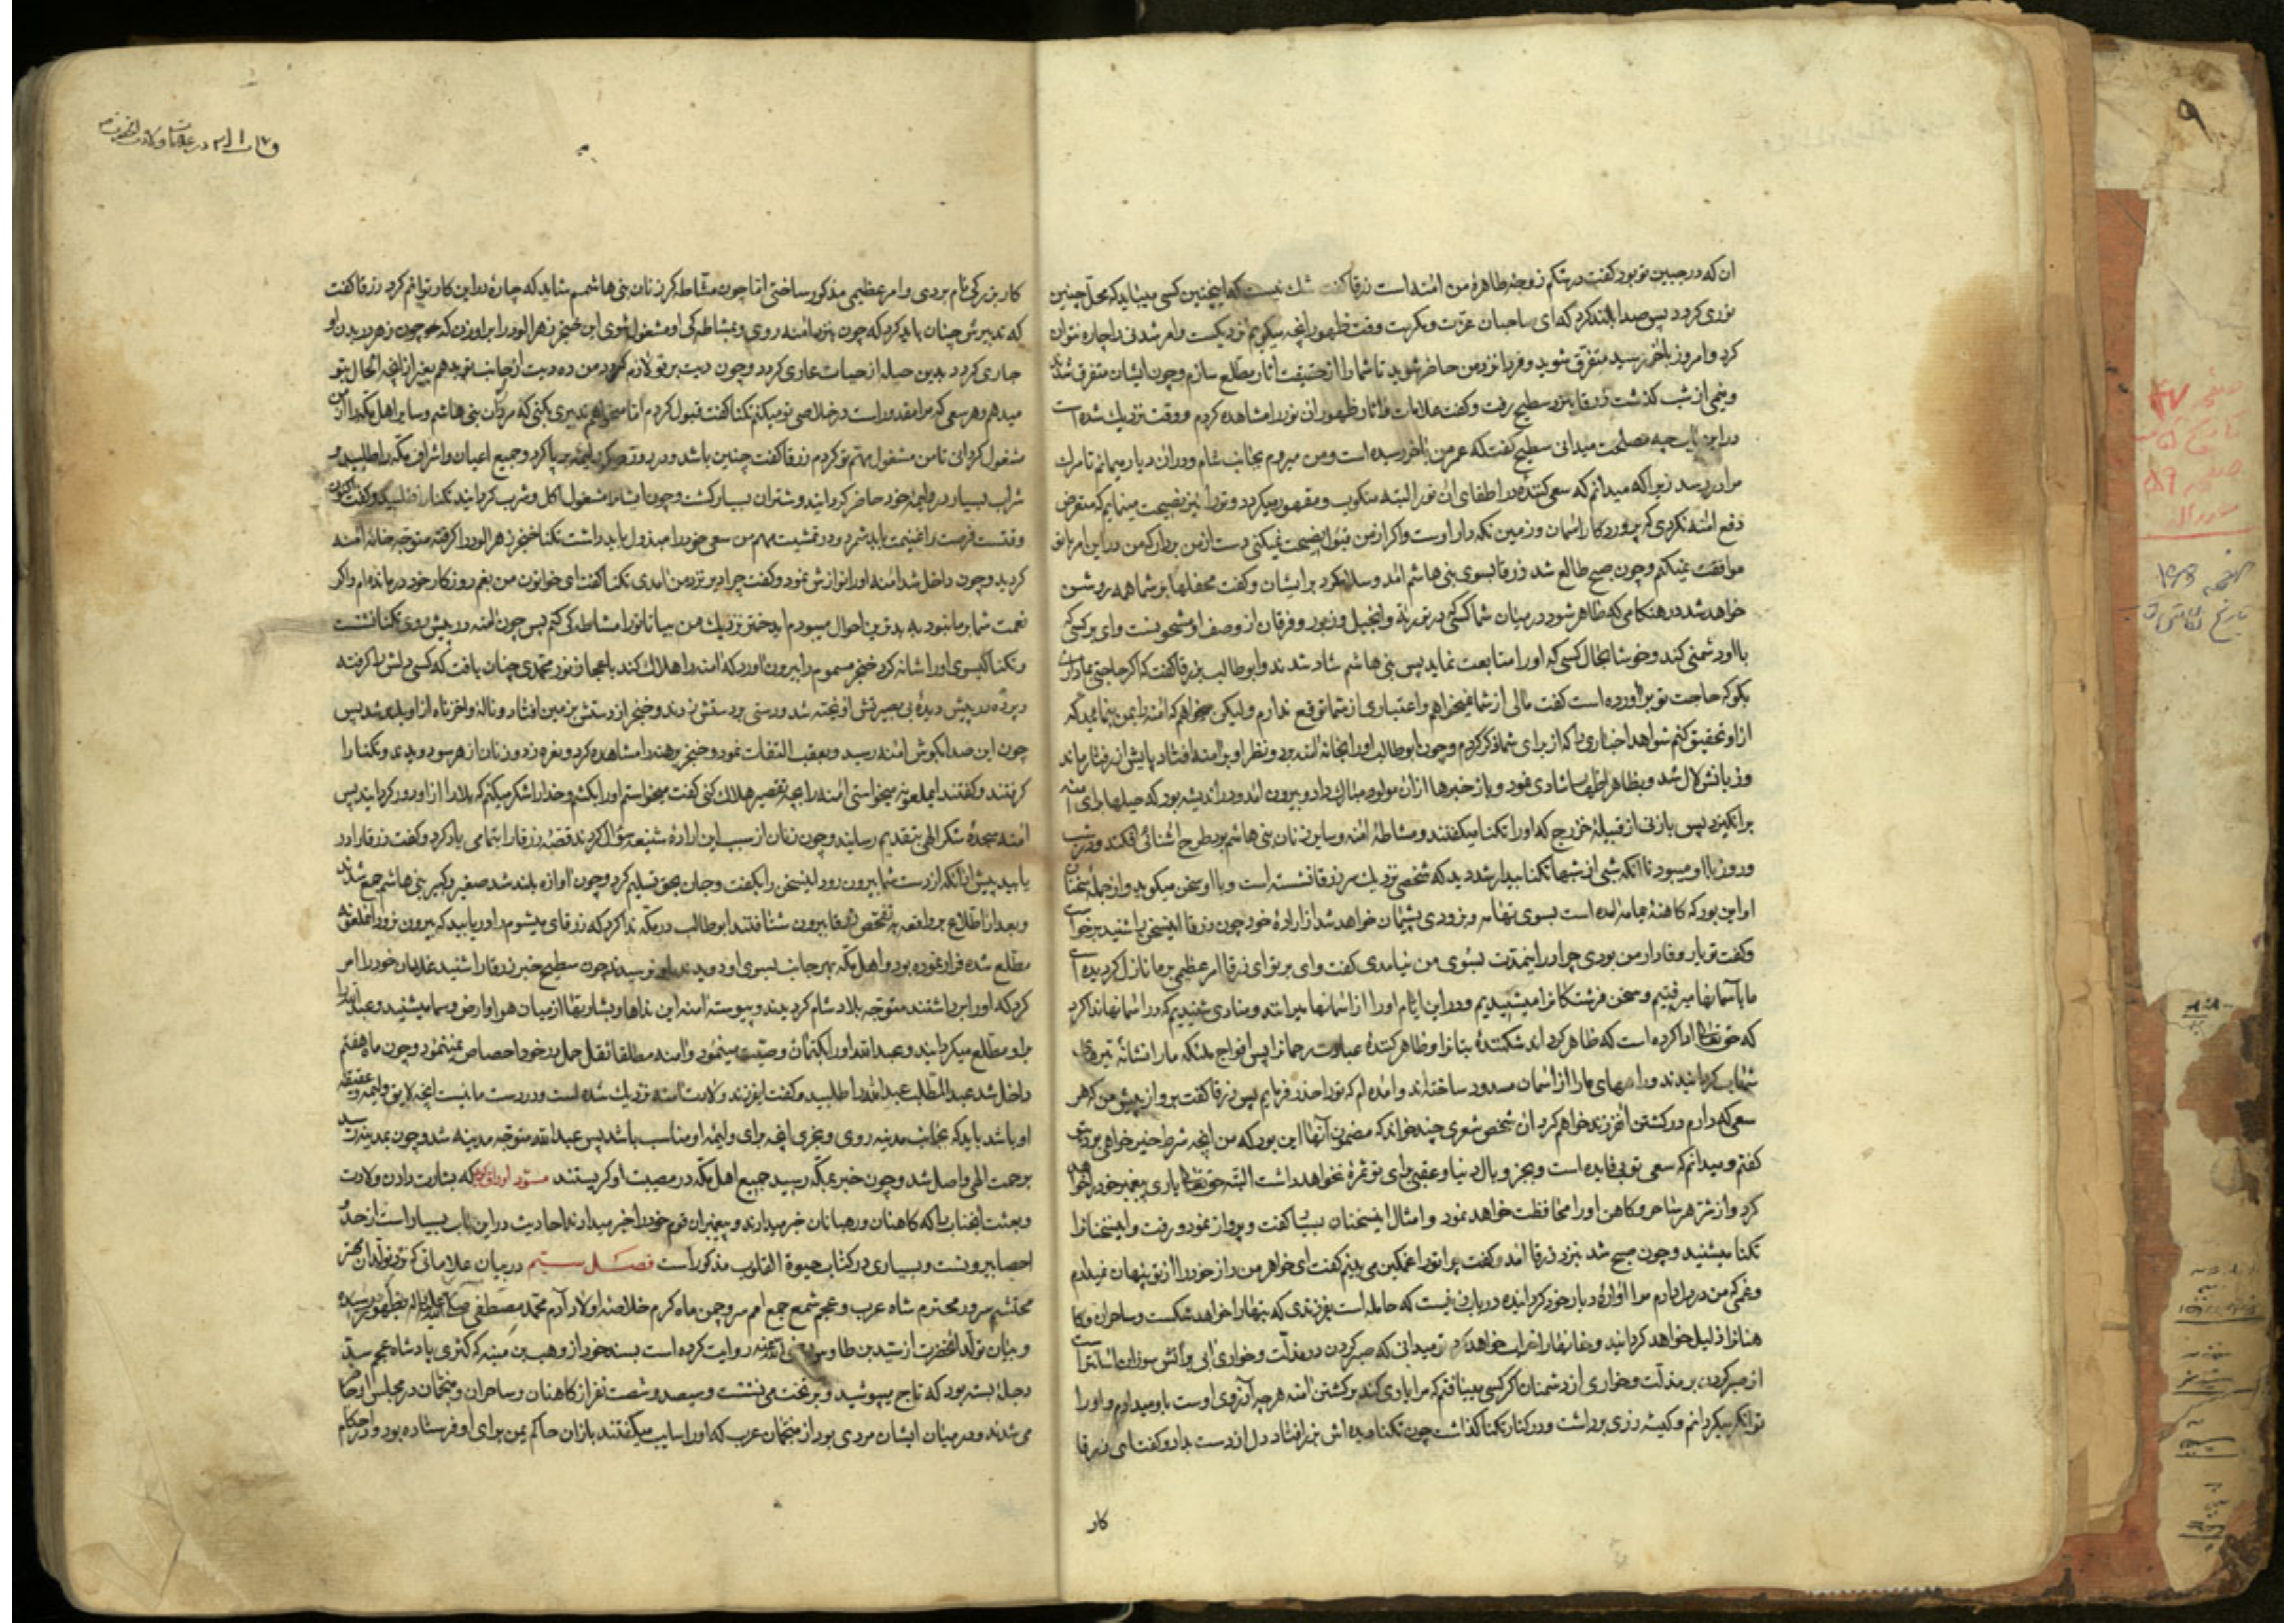 ان که در جبین تو بود گفت در شکم زوجهٔ طاهرهٔ من امنه است زرقا گفت شک نیست که اینچنین کسی میباید که محل چنین
نوری کردد پس صدا بلند کرد که ای صاحبان عزت و مکرمت وقت ظهور انچه میگویم نزدیکست و امر شدنی را چاره نتوان
کرد و امروز باخر رسید متفرق شوید و فردا نزد من حاضر شوید تا شما را از حقیقت اثار مطلع سازم و چون ایشان متفرق شدند
و نیمی از شب کذشت زرقا بنزد سطیح رفت و کفت علامات و اثار ظهور ان نور را مشاهده کردم و وقت نزدیک شده است
در این باب چه مصلحت میدانی سطیح کفت که عمر من باخر رسیده است و من میروم بجانب شام و در ان دیار میمانم تا مرک
مرا در رسد زیرا که میدانم که سعی کننده در اطفای ان نور البته منکوب و مقهور میکردد و تو را نیز نصیحت مینمایم که متعرض
دفع امنه نکردی که پروردکار اسمان و زمین نکه دار اوست و اکر از من قبول نصیحت نمیکنی دست از من بردار که من در این امر با تو
موافقت نمیکنم و چون صبح طالع شد زرقا بسوی بنی هاشم امد و سلام کرد بر ایشان و کفت محفلها بر شما همه روشن
خواهد شد در هنکامی که ظاهر شود در میان شما کسی که در توریة و انجیل و زبور و فرقان از وصف او مشحونست وای بر کسی که
با او دشمنی کند و خوشا بحال کسی که او را متابعت نماید پس بنی هاشم شاد شدند و ابو طالب بزرقا کفت که اکر حاجتی بما داری
بکو که حاجت تو براورده است کفت مالی از شما نمیخواهم و اعتباری از شما توقع ندارم ولیکن میخواهم که امنه را بمن بنمایید که
از او تحقیق کنم شواهد اخباری را که از برای شما ذکر کردم و چون ابو طالب او را بخانهٔ امنه برد و نظر او بر امنه افتاد پایش از رفتار ماند
و زبانش لال شد و بظاهر اظهار شادی نمود و باز خبرها از ان مولود مبارک داد و بیرون امد و در اندیشه بود که حیلها برای امنه
برانکیزد پس با زنی از قبیلهٔ خزرج که او را تکنا میکفتند و مشاطهٔ امنه و سایر زنان بنی هاشم بود طرح اشنائی افکند و در شب
و روز با او میبود تا انکه شبی از شبها تکنا بیدار شد دید که شخصی نزدیک سر زرقا نشسته است و با او سخن میکوید و از جمله سخنان
او این بود که کاهنهٔ یمامه امده است بسوی تهامه و بزودی پشیمان خواهد شد از ارادهٔ خود چون زرقا اینسخن را شنید برخواست
و کفت تو یار وفادار من بودی چرا در اینمدت بسوی من نیامدی کفت وای بر تو ای زرقا امر عظیمی بر ما نازل کردیده است
ما باسمانها میرفتیم و سخن فرشتکانرا میشنیدیم و در این ایام ما را از اسمانها میرانند و منادی شنیدیم که در اسمانها ندا کرد
که حق تعالی اراده کرده است که ظاهر کرداند شکنندهٔ بتانرا و ظاهر کنندهٔ عبادت رحمانرا پس افواج ملئکه ما را نشانهٔ تیرهای
شهاب کردانیدند و راههای ما را از اسمان مسدود ساخته‌اند و امده‌ام که تو را حذر فرمایم پس زرقا کفت برو از پیش من که هر
سعی که دارم در کشتن انفرزند خواهم کرد ان شخص شعری چند خواند که مضمون آنها این بود که من انچه شرط خیر خواهی بود بتو
کفتم و میدانم که سعی تو بی فایده است و بجز وبال دنیا و عقبی برای تو ثمرهٔ نخواهد داشت البته حق تعالی یاری پیغمبر خود خواهد
کرد و از شر هر ساحر و کاهن او را محافظت خواهد نمود و امثال اینسخنان بسیار کفت و پرواز نمود و رفت و اینسخنانرا
تکنا میشنید و چون صبح شد بنزد زرقا امد و کفت چرا تو را غمکین می بینم کفت ای خواهر من راز خود را از تو پنهان نمیدارم
و غمی که من در دل دارم مرا اوارهٔ دیار خود کردانیده در باب زنیست که حامله است بفرزندی که بتها را خواهد شکست و ساحران و کا
هنانرا ذلیل خواهد کردانید و خانها را خراب خواهد کرد تو میدانی که صبر کردن در مذلت و خواری بر آتش سوزان اسانتر است
از صبر کردن بر مذلت و خواری از دشمنان اکر کسی مییافتم که مرا یاری کند بر کشتن امنه هر چه آرزوی اوست باو میدادم و او را
توانکر میکردانم و کیسه زری برداشت و در کنار تکنا کذاشت چون تکنا دیده اش بزر افتاد دل از دست داد و کفت ای زرقا
کار
کار بزرکی نام بردی و امر عظیمی مذکور ساختی اما چون مشاطه کر زنان بنی هاشمم شاید که چارهٔ در این کار توانم کرد زرقا کفت
که تدبیرش چنان باید کرد که چون بنزد امنه روی و بمشاطه کی او مشغول شوی این خنجر زهر الود را بر او زن که چون زهر در بدن او
جاری کردد بدین حیله از حیات عاری کردد و چون دیت بر تو لازم کردد من ده دیت از جانب تو بدهم بغیر از انچه الحال بتو
میدهم و هر سعی که مرا مقدور است در خلاصی تو میکنم تکنا کفت قبول کردم اما میخواهم تدبیری کنی که مردان بنی هاشم و سایر اهل مکه را از من
مشغول کردانی تا من مشغول مهم تو کردم زرقا کفت چنین باشد و در روز دیکر ولیمهٔ بر پا کرد و جمیع اعیان و اشراف مکه را طلبید و
شراب بسیار در ولیمهٔ خود حاضر کردانید و شتران بسیار کشت و چون ایشانرا مشغول اکل و شرب کردانید تکنا را طلبید و کفت اکنون
وقتست فرصت را غنیمت باید شمرد و در تمشیت مهم من سعی خود را مبذول باید داشت تکنا خنجر زهر الود را کرفته متوجه خانهٔ امنه
کردید و چون داخل شد امنه او را نوازش نمود و کفت چرا دیر نزد من امدی تکنا کفت ای خواتون من بغم روزکار خود درمانده ام و اکر
نعمت شما بر ما نبود به بدترین احوال میبودم ای دختر نزدیک من بیا تا تو را مشاطه کی کنم پس چون امنه در پیش روی تکنا نشست
و تکنا کیسوی او را شانه کرد خنجر مسموم را بیرون اورد که امنه را هلاک کند باعجاز نور محمدی چنان یافت که کسی دلش را کرفته
و پردهٔ در پیش دیدهٔ بی بصیرتش اویخته شد و دستی بر دستش زدند و خنجر از دستش بزمین افتاد و ناله واحزناه از او بلند شد پس
چون این صدا بکوش امنه رسید و بعقب التفات نمود و خنجر برهنه را مشاهده کرد و نعره زد و زنان از هر سو دویدند و تکنا را
کرفتند و کفتند ایملعونه میخواستی امنه را بچه تقصیر هلاک کنی کفت میخواستم او را بکشم و خدا را شکر میکنم که بلا را از او دور کردانید پس
امنه سجدهٔ شکر الهی بتقدیم رسانید و چون زنان از سبب این ارادهٔ شنیعه سؤال کردند قصهٔ زرقا را بتمامی یاد کرد و کفت زرقا را در
یابید پیش از انکه از دست شما بیرون رود اینسخن را بکفت و جان بحق تسلیم کرد و چون آوازه بلند شد صغیر و کبیر بنی هاشم جمع شدند
و بعد از اطلاع بر واقعه به تفحص زرقا بیرون شتافتند ابو طالب در مکه ندا کرد که زرقای میشوم را دریابید که بیرون نرود انملعونه
مطلع شده فرار نموده بود و اهل مکه بهر جانب بسوی او دویدند و باو نرسیدند چون سطیح خبر زرقا را شنید غلامان خود را امر
کرد که او را برداشتند متوجه بلاد شام کردیدند و پیوسته امنه این نداها و بشارتها از میان هوا و ارض و سما میشنید و عبدالله را
بر او مطلع میکردانید و عبدالله او را بکتمان وصیت مینمود و امنه مطلقا ثقل حمل در خود احساس نمینمود و چون ماه هفتم
داخل شد عبدالمطلب عبدالله را طلبید و کفت ایفرزند ولادت امنه نزدیک شده است و در دست ما نیست انچه لایق ولیمه و عقیقه
او باشد باید که بجانب مدینه روی و بخری انچه برای ولیمه او مناسب باشد پس عبدالله متوجه مدینه شد و چون بمدینه رسید
برحمت الهی واصل شد و چون خبر بمکه رسید جمیع اهل مکه در مصیبت او کریستند مسود اوراق کوید که بشارت دادن ولادت
و بعثت انجناب را که کاهنان و رهبانان خبر میدادند و پیغمبران قوم خود را خبر میدادند احادیث در این باب بسیار است از حد و
احصا بیرونست و بسیاری در کتاب حیوة القلوب مذکور است فصل سیم در بیان علاماتی که نزد تولد ان بهتر
محتشم سرور محترم شاه عرب و عجم شمع جمع امم سرو چمن ماه کرم خلاصه اولاد آدم محمد مصطفی صلی الله علیه و اله بظهور رسیده
و بیان تولد انحضرت از سید بن طاوس رضی الله عنه روایت کرده است بسند خود از وهب بن منبه که کسری پادشاه عجم سد
دجلهٔ بسته بود که تاج میپوشید و بر تخت می نشست و سیصد و شصت نفر از کاهنان و ساحران و منجمان در مجلس او حاضر
می شدند و در میان ایشان مردی بود از منجمان عرب که او را سایب میکفتند باذان حاکم یمن برای او فرستاده بود و در احکام